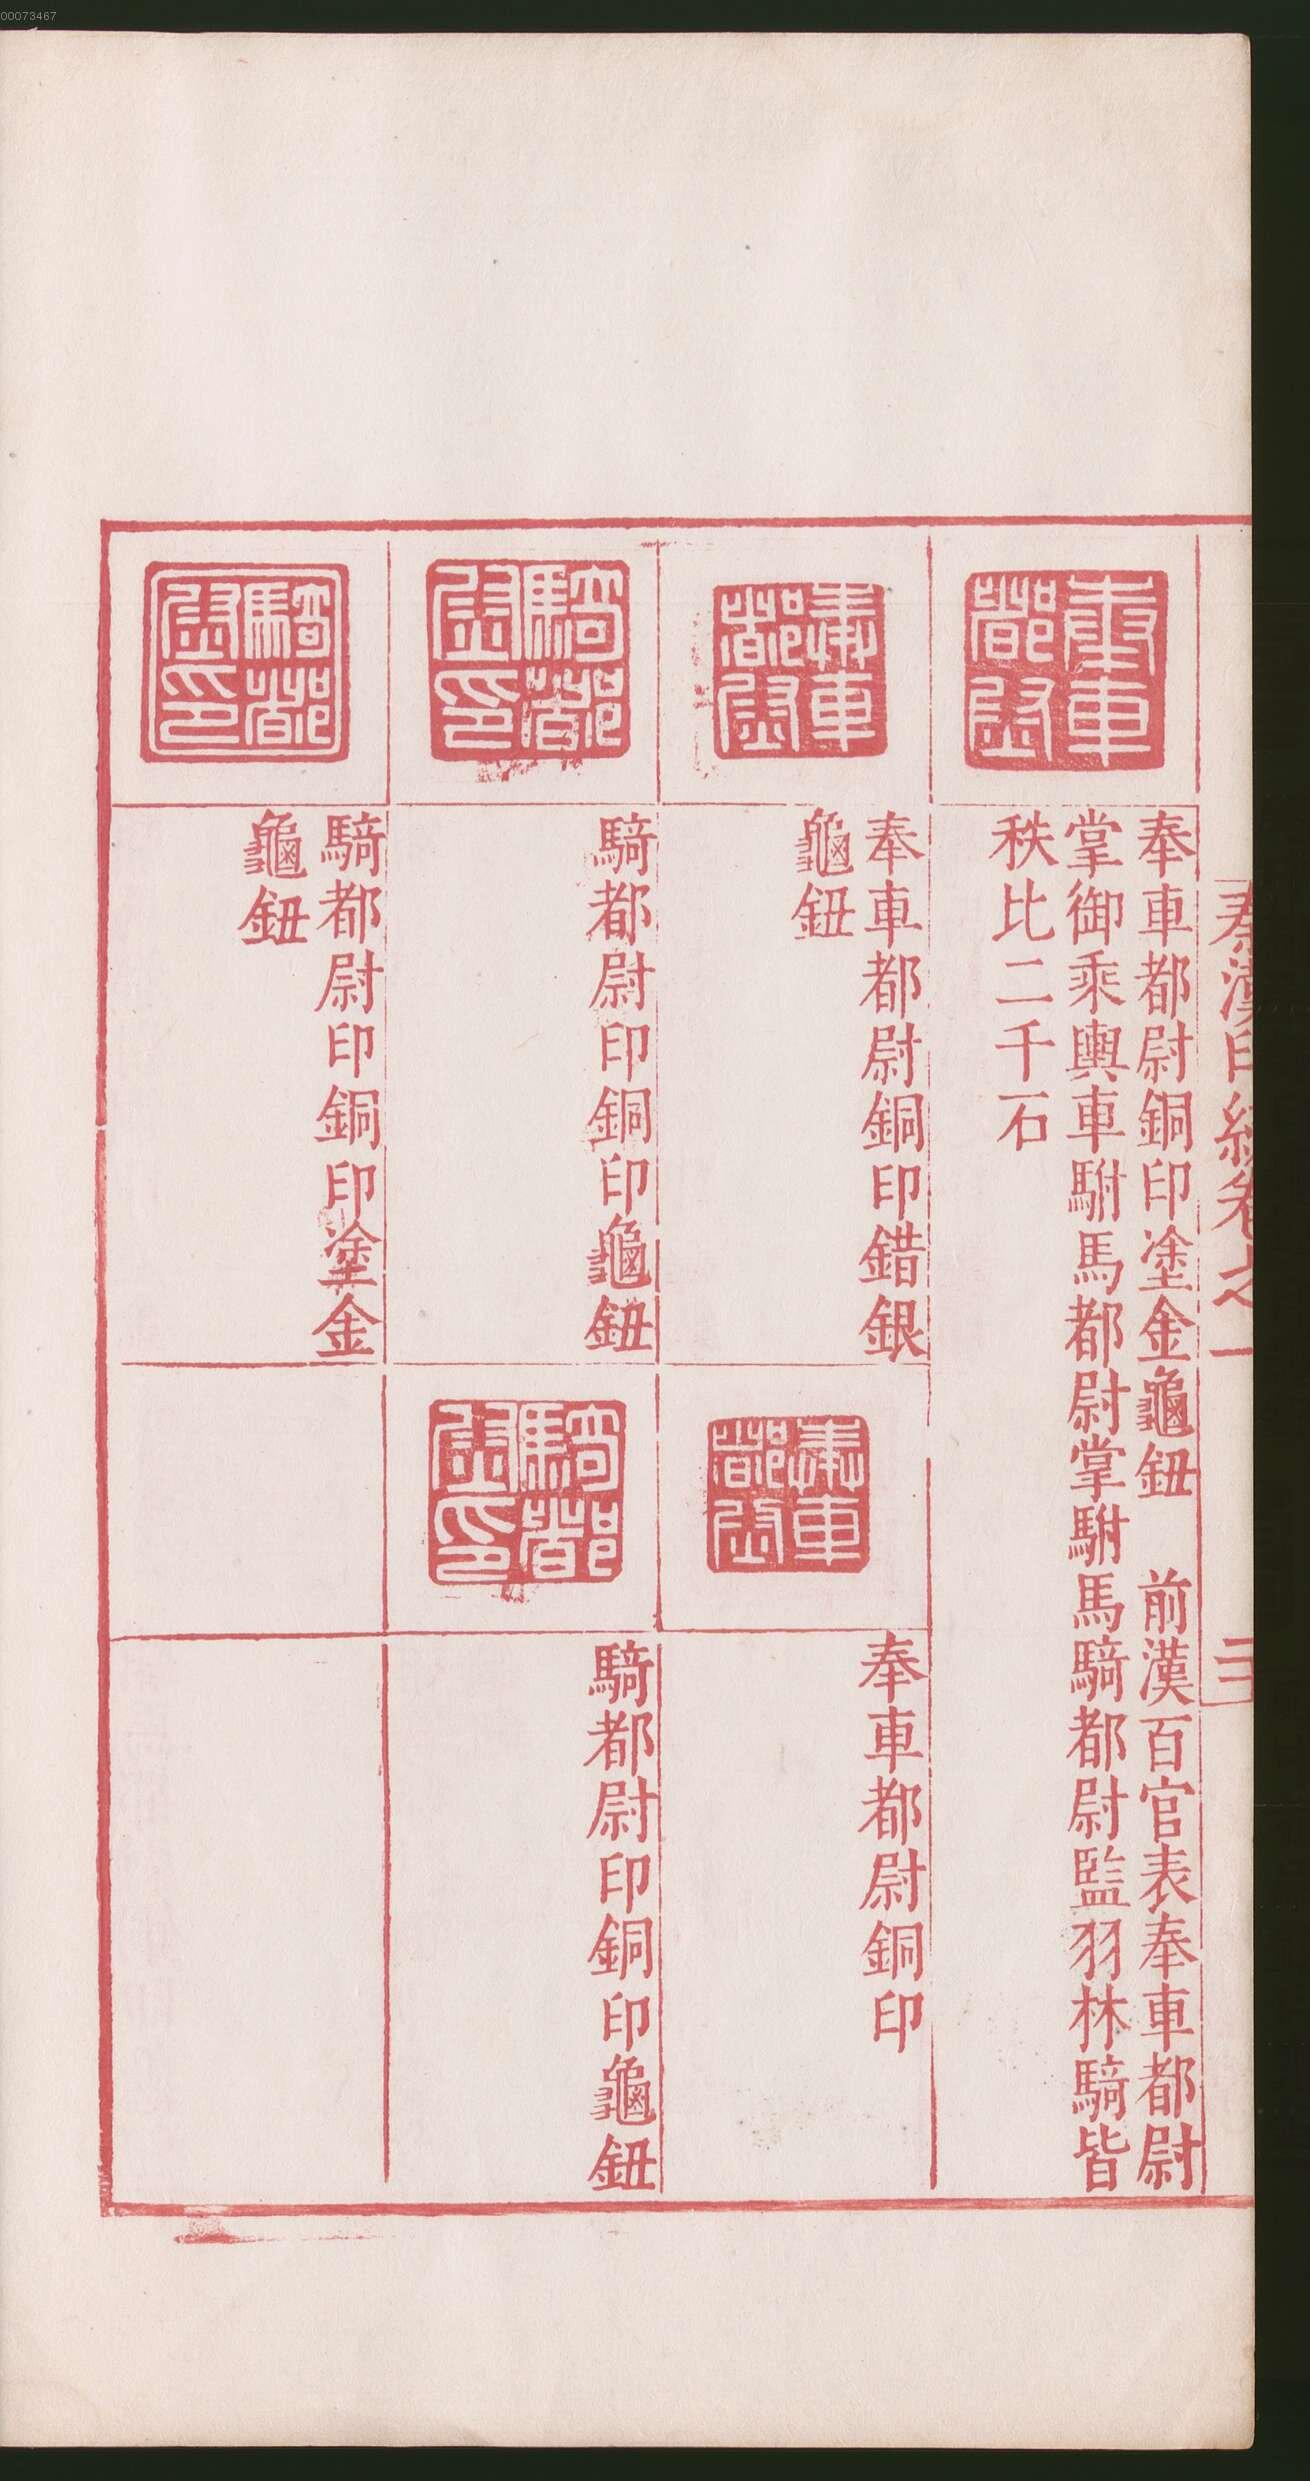 00073467
秦漢印統卷之一
二十
奉車都尉
奉車都尉銅印塗金龜鈕　前漢百官表奉車都尉
掌御乘輿車駙馬都尉掌駙馬騎都尉監羽林騎皆
秩比二千石
奉車都尉
奉車都尉銅印錯銀
龜鈕
奉車都尉
奉車都尉銅印
騎都尉印
騎都尉印銅印龜鈕
騎都尉印
騎都尉印銅印龜鈕
騎都尉印
騎都尉印銅印塗金
龜鈕